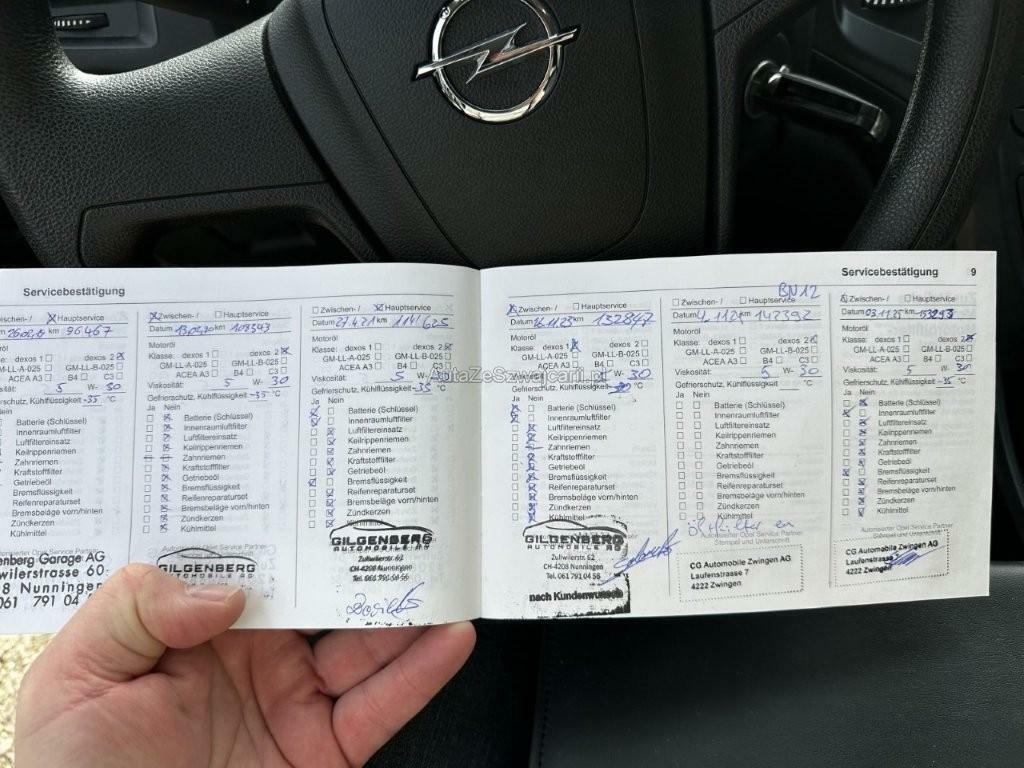 Servicebestätigung
Zwischen- / Hauptservice
km 96467
Motoröl
Klasse: dexos 1 dexos 2
GM-LL-A-025 GM-LL-B-025
ACEA A3 B4 C3
Viskosität: 5 W- 30
Gefrierschutz, Kühlflüssigkeit -35 °C
Ja Nein
Batterie (Schlüssel)
Innenraumluftfilter
Luftfiltereinsatz
Keilrippenriemen
Zahnriemen
Kraftstofffilter
Getriebeöl
Bremsflüssigkeit
Reifenreparaturset
Bremsbeläge vorn/hinten
Zündkerzen
Kühlmittel
enberg Garage AG
wilerstrasse 60
8 Nunningen
061 791 04
Zwischen- / Hauptservice
Datum km 108343
Motoröl
Klasse: dexos 1 dexos 2
GM-LL-A-025 GM-LL-B-025
ACEA A3 B4 C3
Viskosität: 5 W- 30
Gefrierschutz, Kühlflüssigkeit -35 °C
Ja Nein
Batterie (Schlüssel)
Innenraumluftfilter
Luftfiltereinsatz
Keilrippenriemen
Zahnriemen
Kraftstofffilter
Getriebeöl
Bremsflüssigkeit
Reifenreparaturset
Bremsbeläge vorn/hinten
Zündkerzen
Kühlmittel
Autorisierter Opel Service Partner
GILGENBERG
AUTOMOBILE AG
Zwischen- / Hauptservice
Datum 27.4.21 km
Motoröl
Klasse: dexos 1 dexos 2
GM-LL-A-025 GM-LL-B-025
ACEA A3 B4 C3
Viskosität: 5 W- 30
Gefrierschutz, Kühlflüssigkeit -35 °C
Ja Nein
Batterie (Schlüssel)
Innenraumluftfilter
Luftfiltereinsatz
Keilrippenriemen
Zahnriemen
Kraftstofffilter
Getriebeöl
Bremsflüssigkeit
Reifenreparaturset
Bremsbeläge vorn/hinten
Zündkerzen
Kühlmittel
GILGENBERG
AUTOMOBILE AG
Zullwilerstr. 62
CH-4208 Nunningen
Tel. 061 791 04 56
Servicebestätigung 9
Zwischen- / Hauptservice
Datum km 132847
Motoröl
Klasse: dexos 1 dexos 2
GM-LL-A-025 GM-LL-B-025
ACEA A3 B4 C3
Viskosität: 5 W- 30
Gefrierschutz, Kühlflüssigkeit °C
Ja Nein
Batterie (Schlüssel)
Innenraumluftfilter
Luftfiltereinsatz
Keilrippenriemen
Zahnriemen
Kraftstofffilter
Getriebeöl
Bremsflüssigkeit
Reifenreparaturset
Bremsbeläge vorn/hinten
Zündkerzen
Kühlmittel
GILGENBERG
AUTOMOBILE AG
Zullwilerstr. 62
CH-4208 Nunningen
Tel. 061 791 04 56
nach Kundenwunsch
Zwischen- / Hauptservice
Datum km 142392
Motoröl
Klasse: dexos 1 dexos 2
GM-LL-A-025 GM-LL-B-025
ACEA A3 B4 C3
Viskosität: 5 W- 30
Gefrierschutz, Kühlflüssigkeit °C
Ja Nein
Batterie (Schlüssel)
Innenraumluftfilter
Luftfiltereinsatz
Keilrippenriemen
Zahnriemen
Kraftstofffilter
Getriebeöl
Bremsflüssigkeit
Reifenreparaturset
Bremsbeläge vorn/hinten
Zündkerzen
Kühlmittel
Autorisierter Opel Service Partner
Stempel und Unterschrift
CG Automobile Zwingen AG
Laufenstrasse 7
4222 Zwingen
Zwischen- / Hauptservice
Datum 03.11.25 km
Motoröl
Klasse: dexos 1 dexos 2
GM-LL-A-025 GM-LL-B-025
ACEA A3 B4 C3
Viskosität: 5 W- 30
Gefrierschutz, Kühlflüssigkeit -35 °C
Ja Nein
Batterie (Schlüssel)
Innenraumluftfilter
Luftfiltereinsatz
Keilrippenriemen
Zahnriemen
Kraftstofffilter
Getriebeöl
Bremsflüssigkeit
Reifenreparaturset
Bremsbeläge vorn/hinten
Zündkerzen
Kühlmittel
Autorisierter Opel Service Partner
Stempel und Unterschrift
CG Automobile Zwingen AG
Laufenstrasse 7
4222 Zwingen
AutaZeSzwajcarii.pl